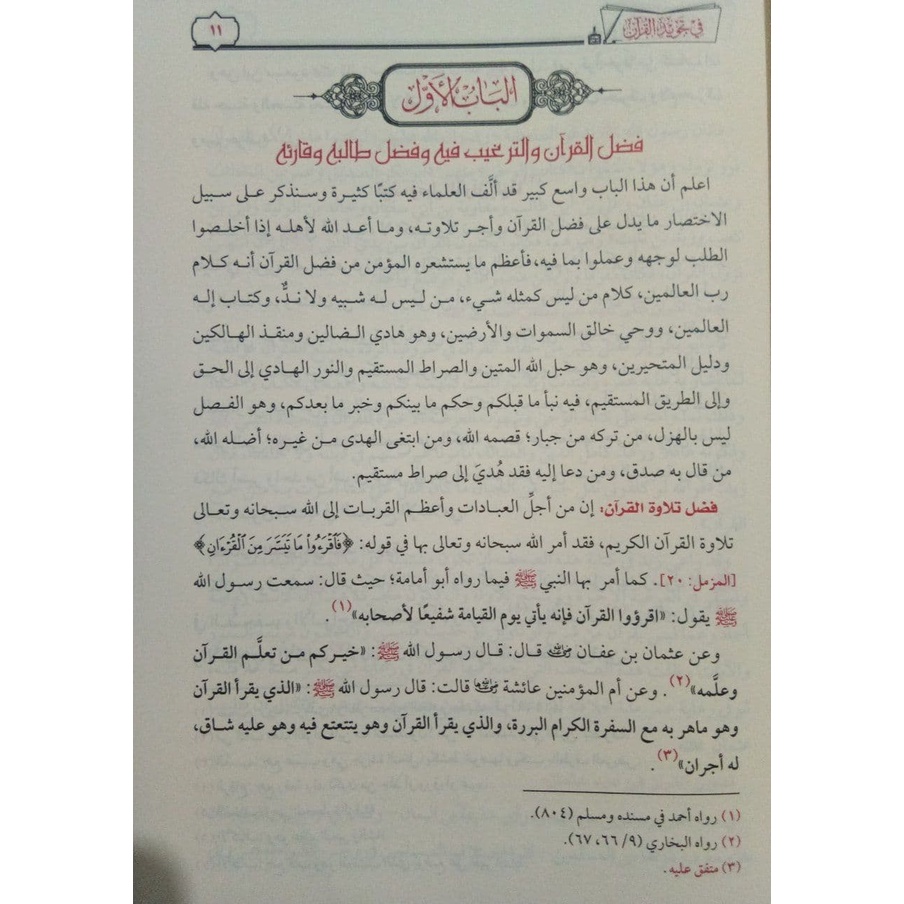 في تجويد القرآن
١١
الباب الأول
فضل القرآن والترغيب فيه وفضل طالبه وقارئه
اعلم أن هذا الباب واسع كبير قد ألَّف العلماء فيه كتبًا كثيرة وسنذكر على سبيل
الاختصار ما يدل على فضل القرآن وأجر تلاوته، وما أعد الله لأهله إذا أخلصوا
الطلب لوجهه وعملوا بما فيه، فأعظم ما يستشعره المؤمن من فضل القرآن أنه كلام
رب العالمين، كلام من ليس كمثله شيء، من ليس له شبيه ولا ندٌّ، وكتاب إله
العالمين، ووحي خالق السموات والأرضين، وهو هادي الضالين ومنقذ الهالكين
ودليل المتحيرين، وهو حبل الله المتين والصراط المستقيم والنور الهادي إلى الحق
وإلى الطريق المستقيم، فيه نبأ ما قبلكم وحكم ما بينكم وخبر ما بعدكم، وهو الفصل
ليس بالهزل، من تركه من جبار؛ قصمه الله، ومن ابتغى الهدى من غيره؛ أضله الله،
من قال به صدق، ومن دعا إليه فقد هُديَ إلى صراط مستقيم.
فضل تلاوة القرآن: إن من أجلِّ العبادات وأعظم القربات إلى الله سبحانه وتعالى
تلاوة القرآن الكريم، فقد أمر الله سبحانه وتعالى بها في قوله: ﴿فَٱقْرَءُوا۟ مَا تَيَسَّرَ مِنَ ٱلْقُرْءَانِ﴾
[المزمل: ٢٠]. كما أمر بها النبي ﷺ فيما رواه أبو أمامة؛ حيث قال: سمعت رسول الله
ﷺ يقول: «اقرؤوا القرآن فإنه يأتي يوم القيامة شفيعًا لأصحابه»(١).
وعن عثمان بن عفان رضي الله عنه قال: قال رسول الله ﷺ: «خيركم من تعلَّم القرآن
وعلَّمه»(٢). وعن أم المؤمنين عائشة رضي الله عنها قالت: قال رسول الله ﷺ: «الذي يقرأ القرآن
وهو ماهر به مع السفرة الكرام البررة، والذي يقرأ القرآن وهو يتتعتع فيه وهو عليه شاق،
له أجران»(٣).
(١) رواه أحمد في مسنده ومسلم (٨٠٤).
(٢) رواه البخاري (٩/ ٦٦، ٦٧).
(٣) متفق عليه.